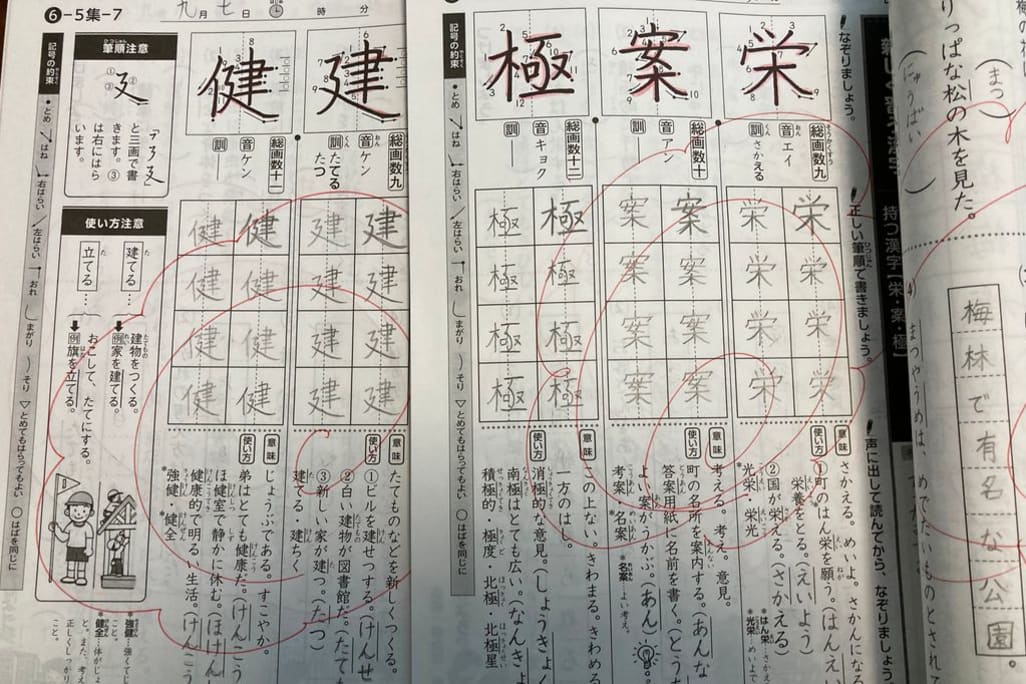 りっぱな松の木を見た。
(まつ)
(にゅうばい)
梅林で有名な公園。
まつやうめは、めでたいものとされて
持つ漢字【栄・案・極】
！なぞりましょう。
！正しい筆順で書きましょう。
！声に出して読んでから、なぞりましょう
栄
総画数九
音 エイ
訓 さかえる
栄 栄 栄 栄
栄 栄 栄 栄
意味
さかえる。めいよ。さかんになる
使い方
①町のはん栄を願う。(はんえい
栄養をとる。(えいよう)
②国が栄える。(さかえる)
*光栄・栄光
*はん栄…さかえ
*光栄…めいよ
案
総画数十
音 アン
訓 ―
案 案 案 案
案 案 案 案
意味
考える。考え。意見。
使い方
町の名所を案内する。(あんな
答案用紙に名前を書く。(とう
よい案がうかぶ。(あん)
考案・*名案
*名案…よい考え。
極
総画数十二
音 キョク
訓 ―
極 極 極 極
極 極 極 極
意味
この上ない。きわまる。きわめる
一方のはし。
使い方
消極的な意見。(しょうきょく
南極はとても広い。(なんきょ
積極的・極度・北極・北極星
記号の約束
●とめ はね 右はらい 左はらい おれ まがり そり ▽とめてもはらってもよい ○はばを同じに
⑥-5集-7
九月七日 時 分
建
総画数九
音 ケン
訓 たてる たつ
建 建 建 建
建 建 建 建
意味
たてものなどを新しくつくる。
使い方
①ビルを建せつする。(けんせ
②白い建物が図書館だ。(たても
③新しい家が建つ。(たつ)
建てる・建ちく
健
総画数十一
音 ケン
訓 ―
健 健 健 健
健 健 健 健
意味
じょうぶである。すこやか。
使い方
弟はとても健康だ。(けんこう
ほ健室で静かに休む。(ほけん
健康的で明るい生活。(けんこう
*強健・*健全
*強健…強くて
こと。
*健全…体がじょ
と。また、考え
正しくしっかり
こと。
筆順注意
①②③
「㇋ ㇌ 廴」
と三画で書
きます。③
は右にはら
います。
使い方注意
建てる…
建物をつくる。
例 家を建てる。
立てる…
おこして、たてにする。
例 旗を立てる。
記号の約束
●とめ はね 右はらい 左はらい おれ まがり そり ▽とめてもはらってもよい ○はばを同じに